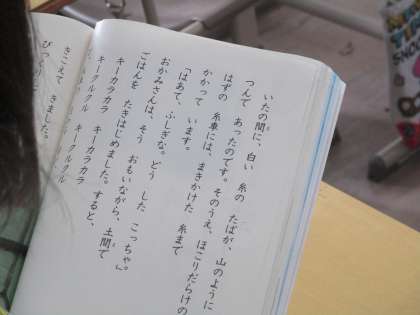 いたの間に、白い 糸の たばが、山のように
つんで あったのです。そのうえ、ほこりだらけの
はずの 糸車には、まきかけた 糸まで
かかって います。
「はあて、ふしぎな。どう した こっちゃ。」
おかみさんは、そう おもいながら、土間で
ごはんを たきはじめました。すると、
キーカラカラ キーカラカラ
キークルクル キークルクル
きこえて きました。
びっくりして